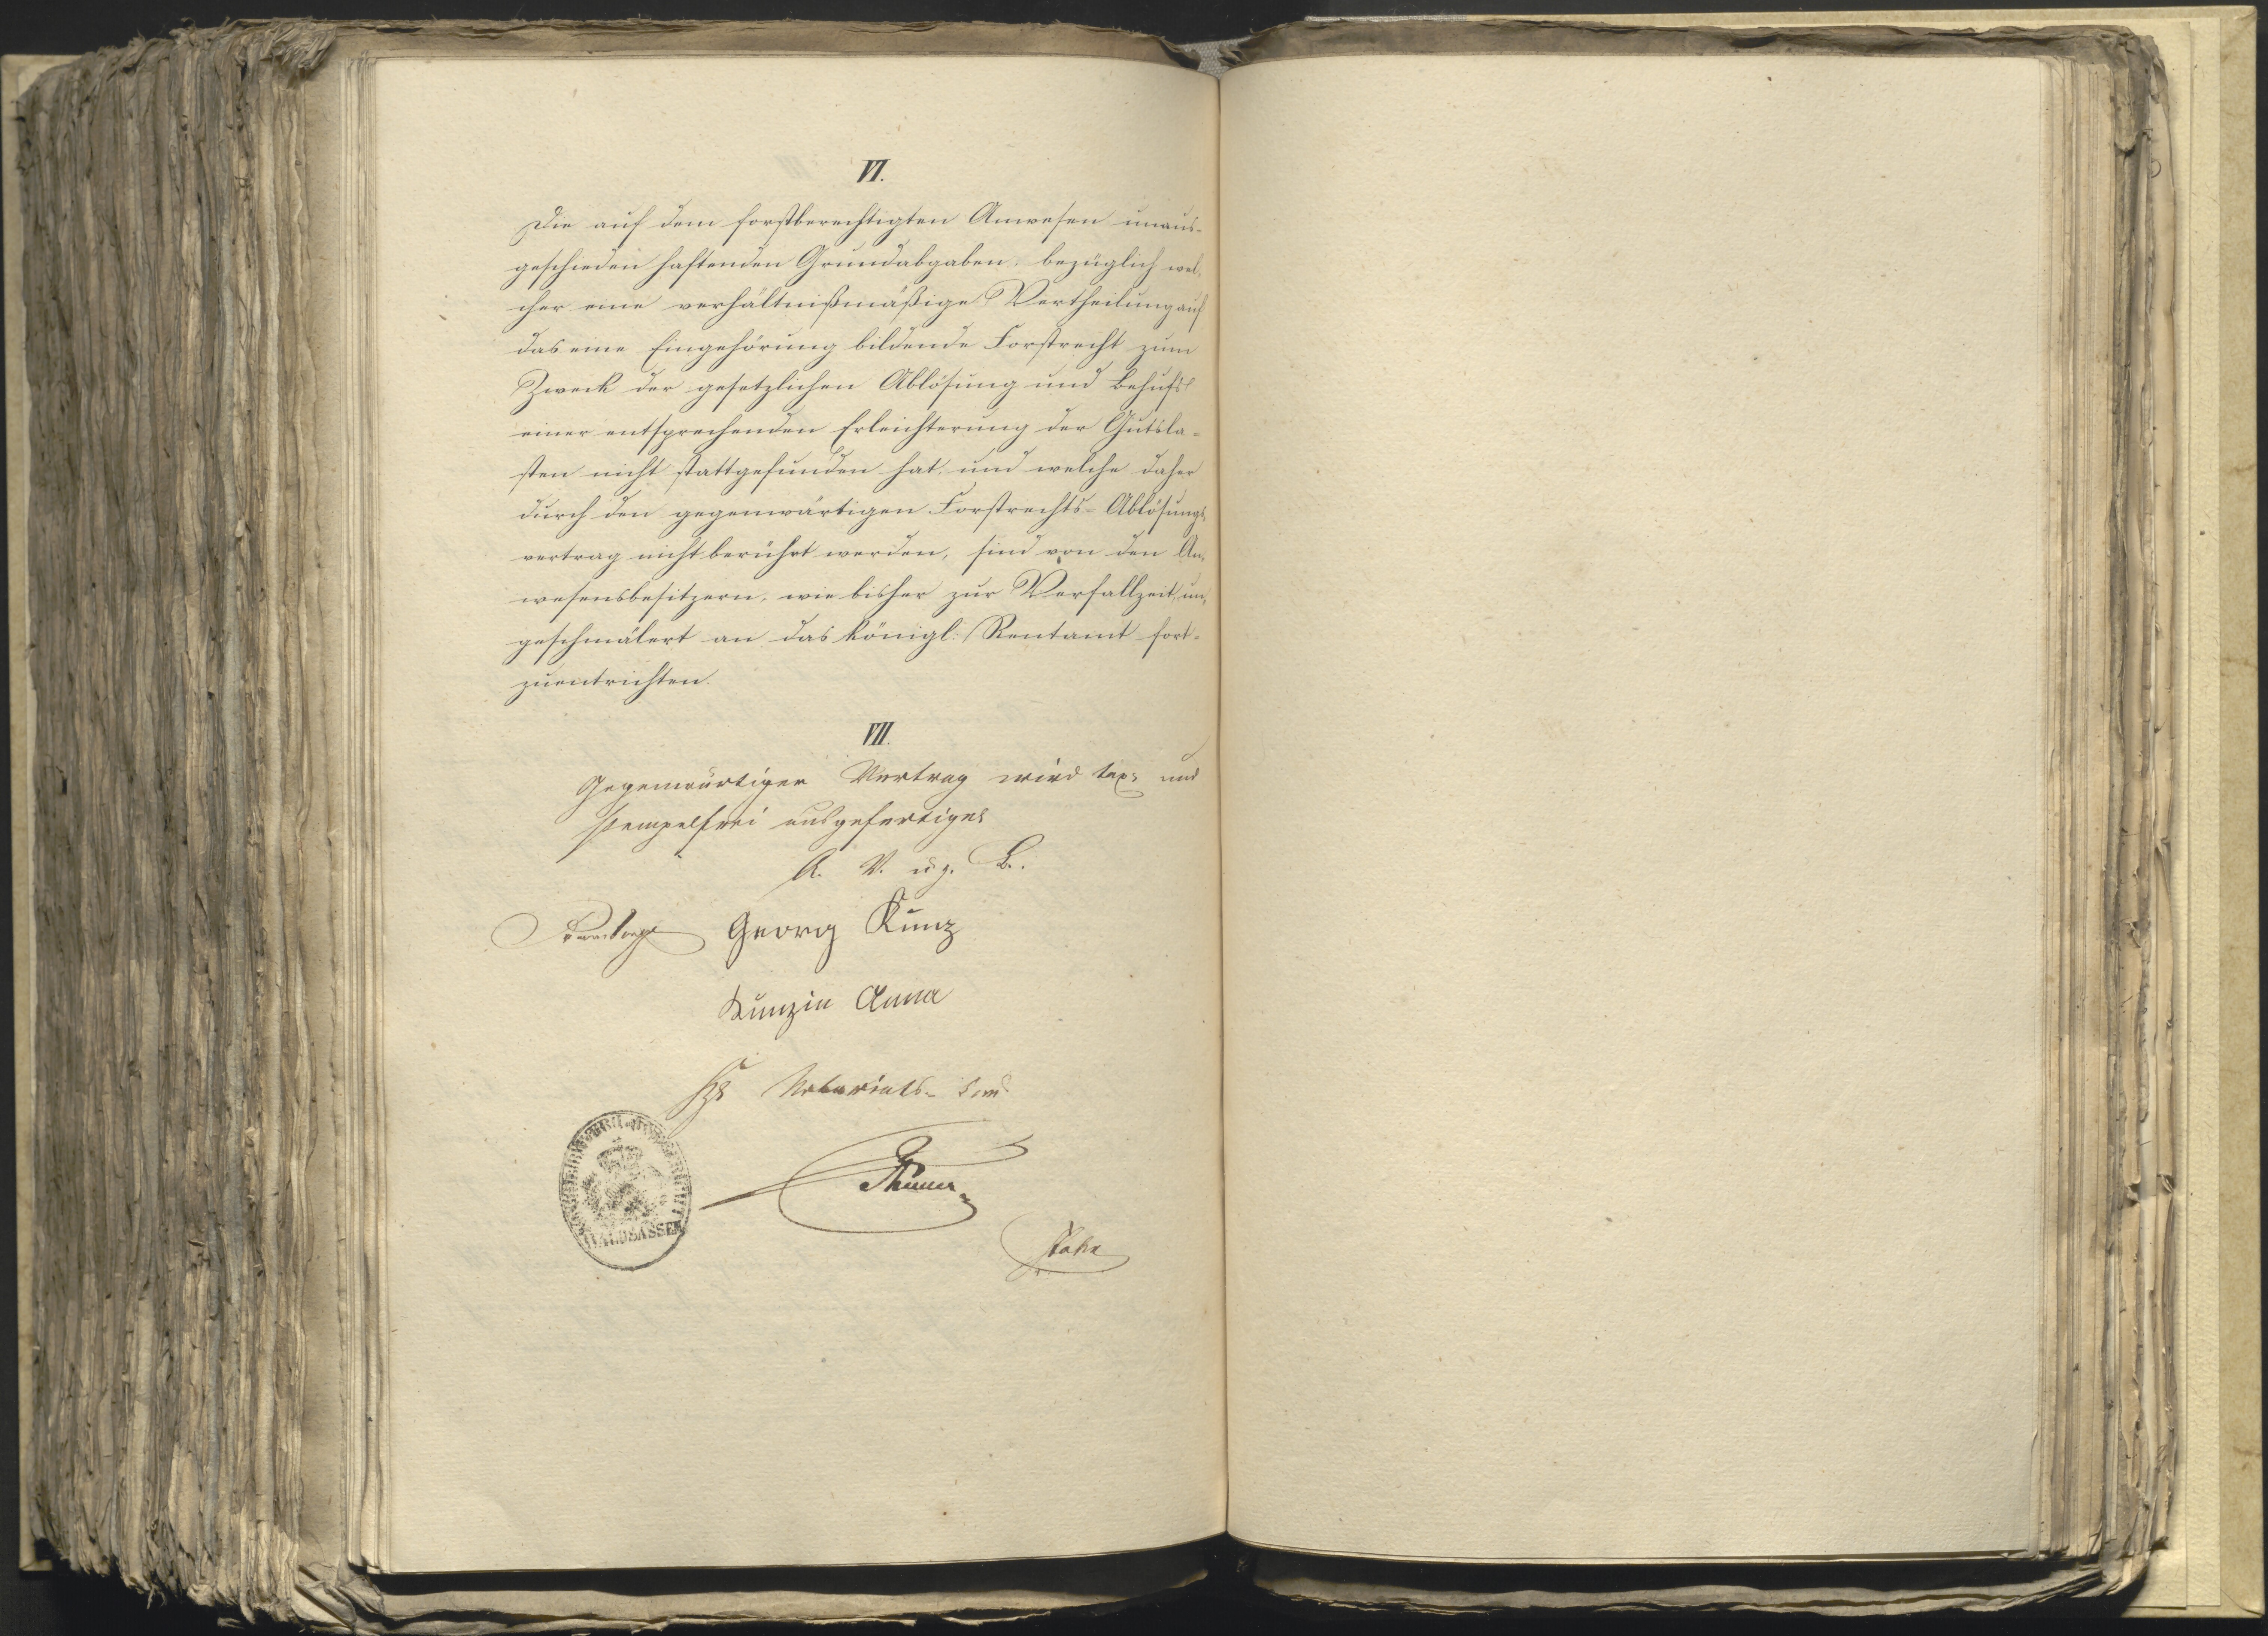 VI.
Die auf dem forstberechtigten Anwesen unaus-
geschieden haftenden Grundabgaben, bezüglich wel-
cher eine verhältnißmäßige Vertheilung auf
das eine Eingehörung bildende Forstrecht zum
Zweck der gesetzlichen Ablösung und behufs
einer entsprechenden Erleichterung der Gutsla-
sten nicht stattgefunden hat und welche daher
durch den gegenwärtigen Forstrechts-Ablösungs-
vertrag nicht berührt werden, sind von den An-
wesensbesitzern, wie bisher zur Verfallzeit un-
geschmälert an das königl: Rentamt fort-
zuentrichten.
VII.
Gegenwärtiger Vertrag wird tax- und
stempelfrei ausgefertiget
A. V. u. g. B.
Georg Kunz
Kunzin Anna
Notariats-
WALDSASSEN